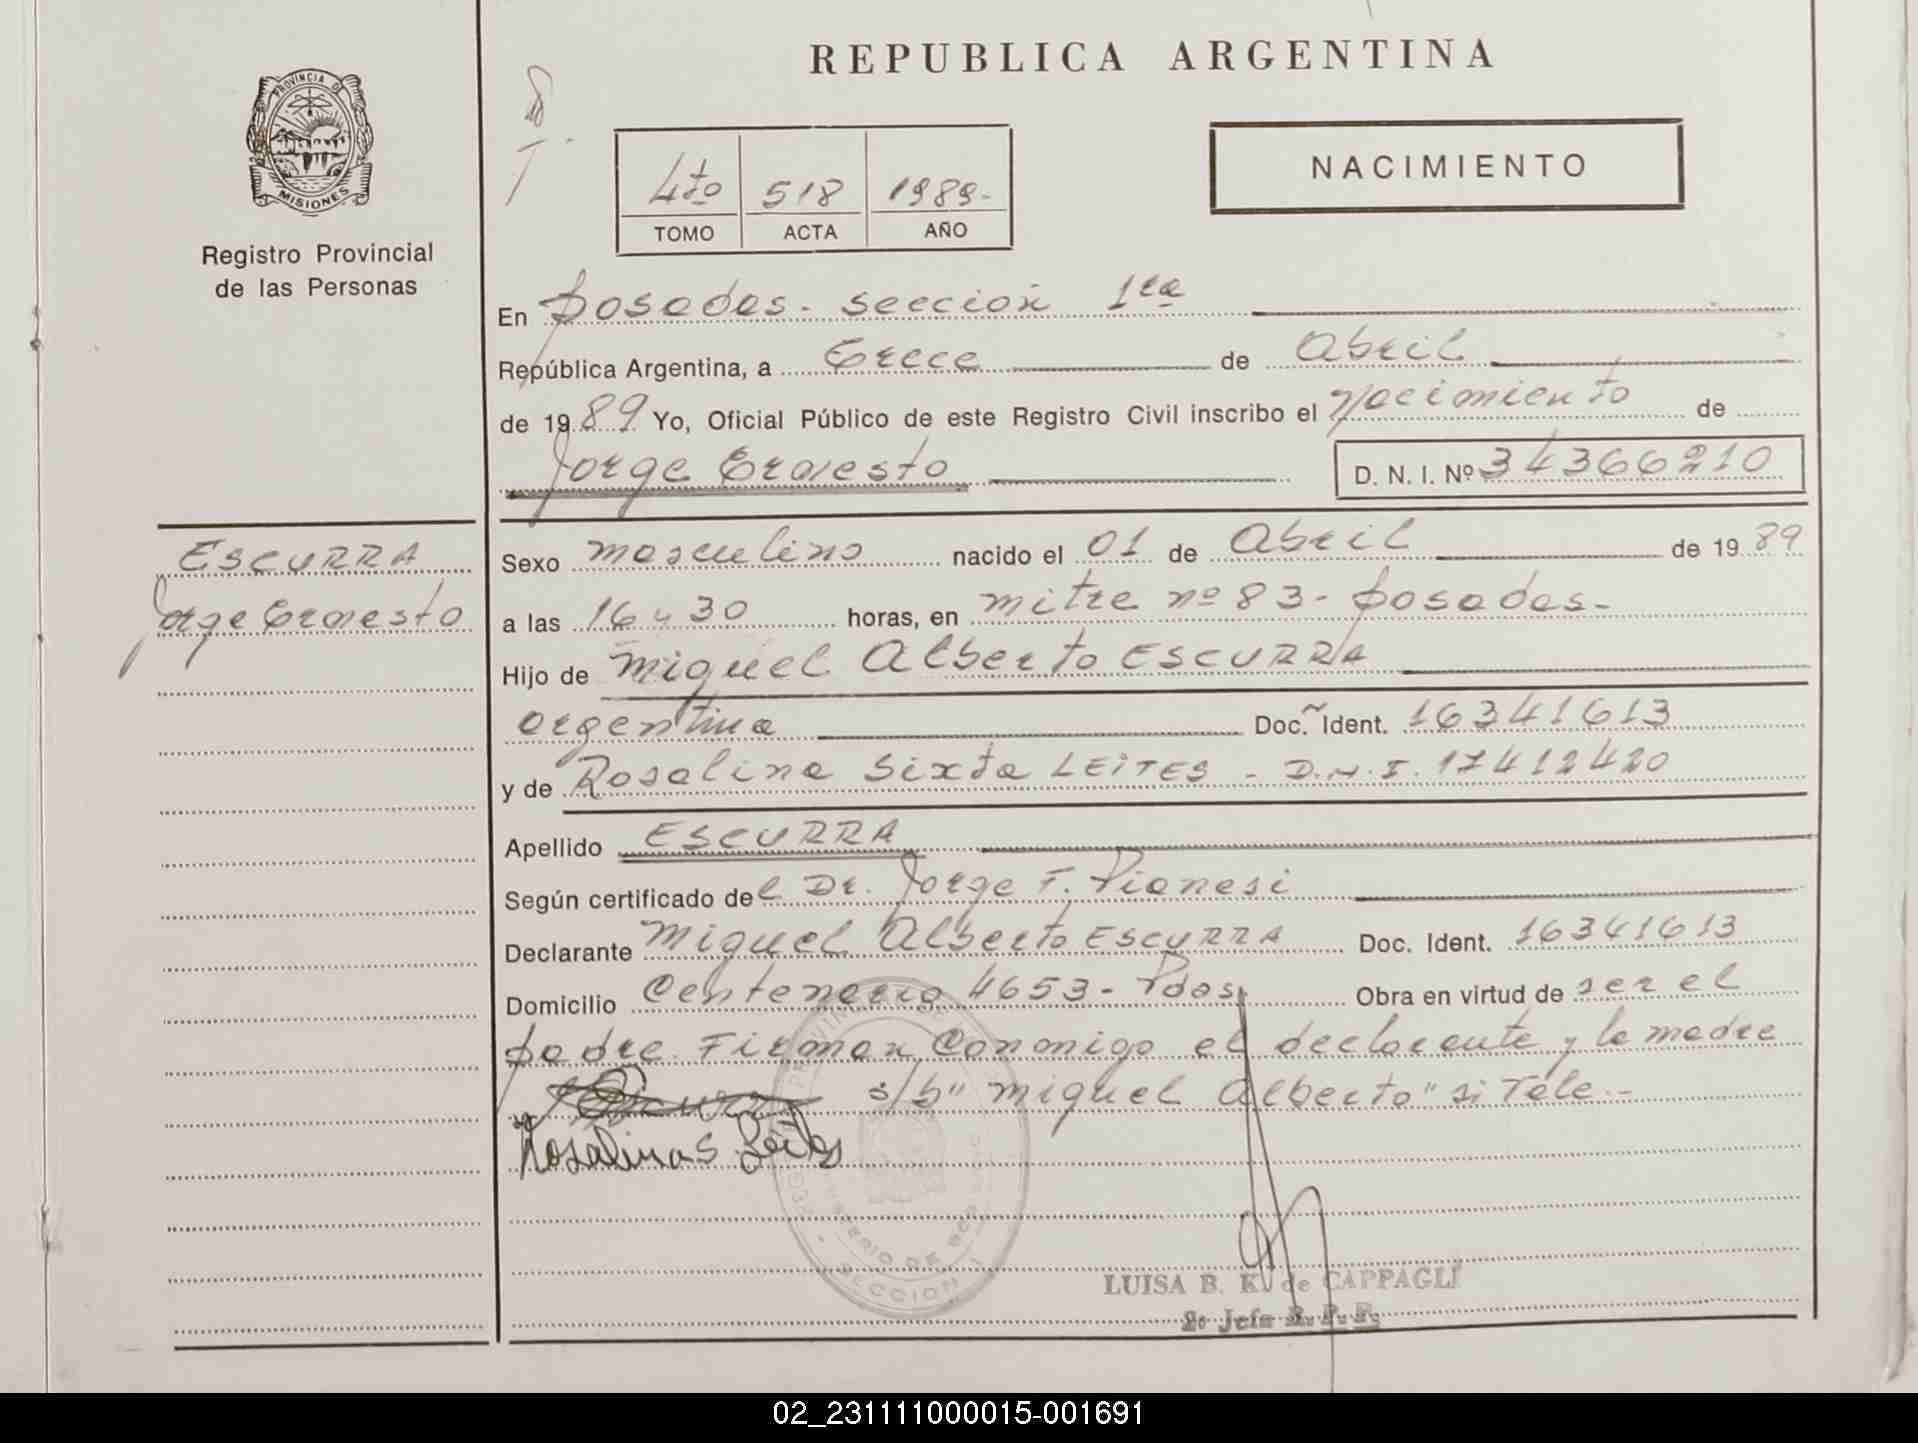 REPUBLICA ARGENTINA
PROVINCIA DE
MISIONES
Registro Provincial
de las Personas
4to 518 1989.-
TOMO ACTA AÑO
NACIMIENTO
En Posadas - sección 1ra
República Argentina, a Trece de Abril
de 1989 Yo, Oficial Público de este Registro Civil inscribo el Nacimiento de
Jorge Ernesto D. N. I. Nº 34366210
ESCURRA
Jorge Ernesto
Sexo masculino nacido el 01 de Abril de 1989
a las 16 y 30 horas, en mitre nº 83 - Posadas -
Hijo de Miguel Alberto ESCURRA
argentina Doc. Ident. 16341613
y de Rosalina Sixta LEITES - D.N.I. 17412420
Apellido ESCURRA
Según certificado del Dr. Jorge F. Pianesi
Declarante Miguel Alberto ESCURRA Doc. Ident. 16341613
Domicilio Centenario 4653 - Pdas. Obra en virtud de ser el
padre Firman Conmigo el declarante y la madre
s/b "Miguel Alberto" si Vale.-
Rosalina S Leites
SECCION 1
LUISA B. K. de CAPPAGLI
2º Jefa R. P. P.
02_231111000015-001691